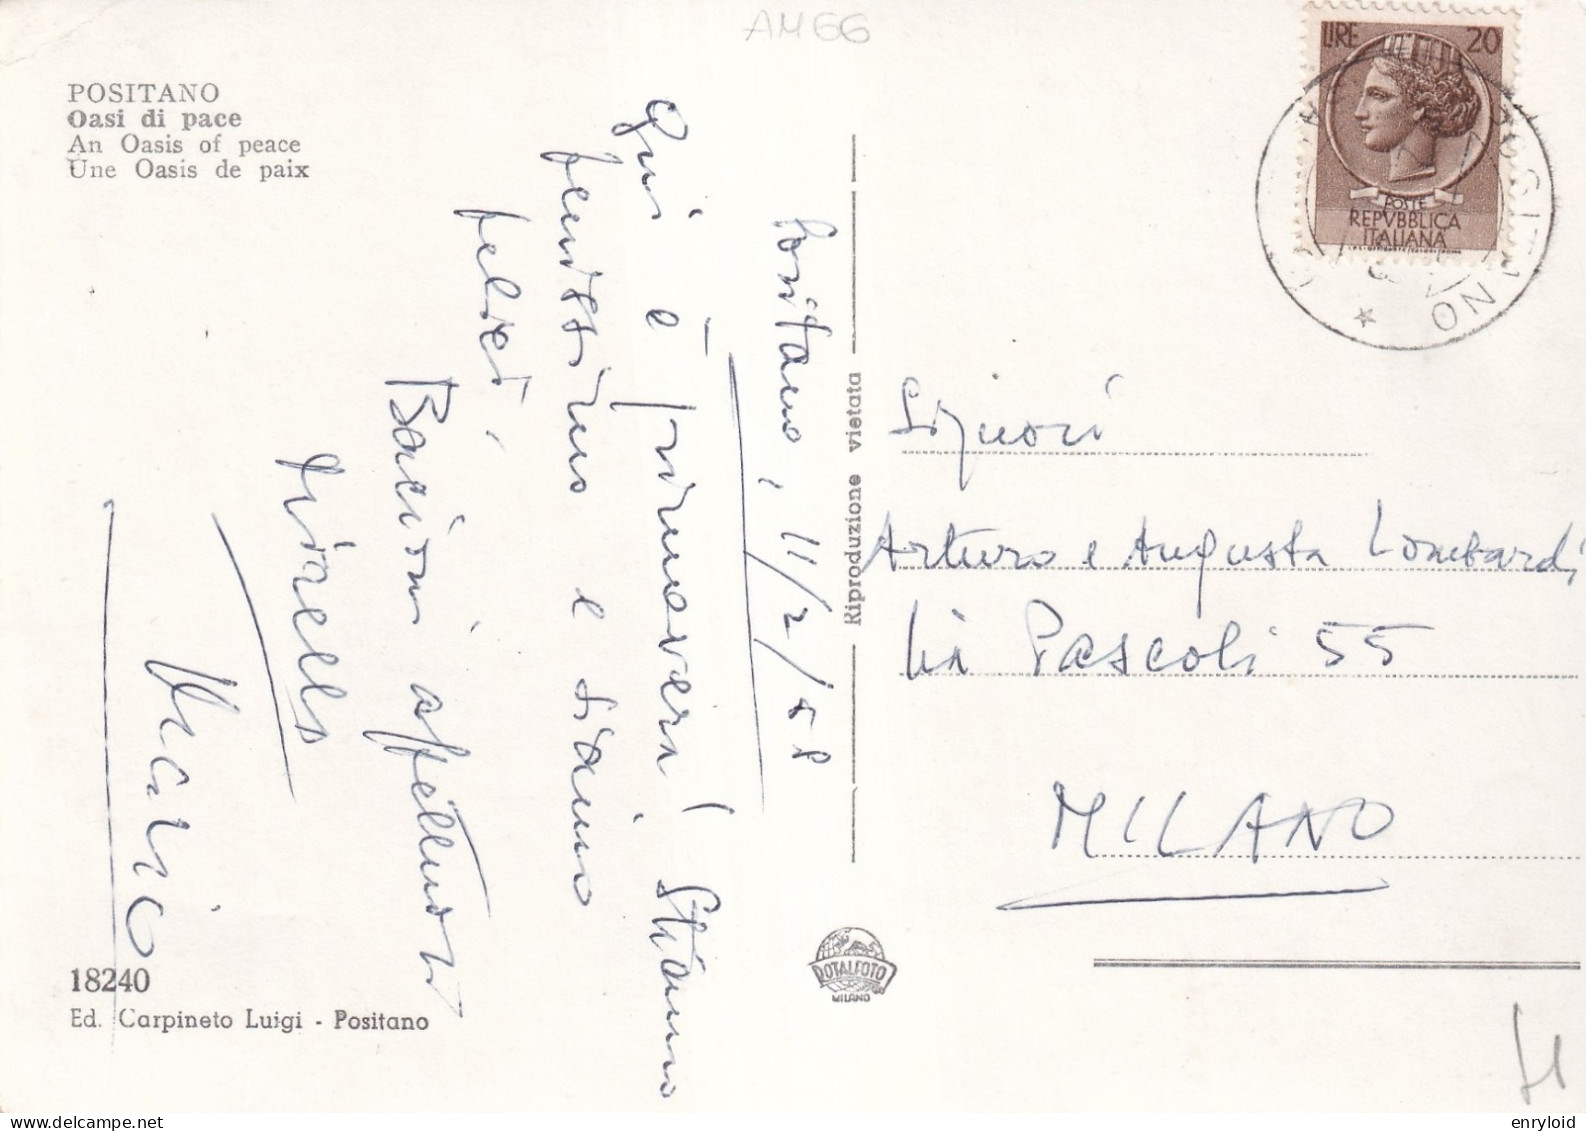 AM66
POSITANO
Oasi di pace
An Oasis of peace
Une Oasis de paix
Positano, 11/2/58
Qui è primavera! Stiamo
benissimo e siamo
felici.
Bacioni affettuosi
Mario
18240
Ed. Carpineto Luigi - Positano
Riproduzione vietata
ROTALFOTO
MILANO
LIRE 20
POSTE
REPVBBLICA
ITALIANA
POSITANO
Signori
Arturo e Augusta Lombardi
Via Pascoli 55
MILANO
enryloid © delcampe.net